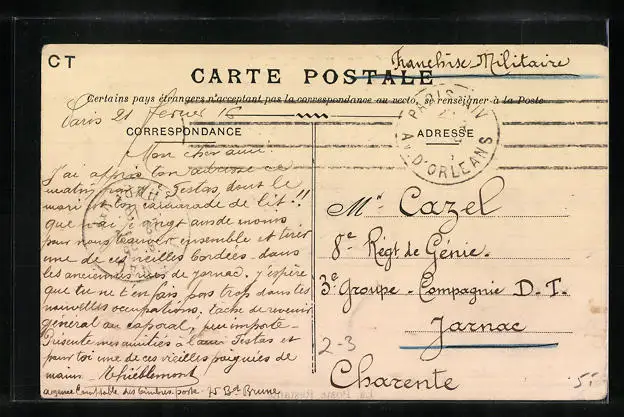 CT
Franchise Militaire
CARTE POSTALE
Certains pays étrangers n'acceptent pas la correspondance au recto, se renseigner à la Poste
Paris 21 février 16
CORRESPONDANCE
Mon cher ami.
J'ai appris ton adresse ce
matin par Mme Testas, dont le
mari est ton camarade de lit!!
que n'ai-je vingt ans de moins
pour nous trouver ensemble et tirer
une de ces vieilles bordées dans
les anciennes rues de Jarnac. j'espère
que tu ne t'en fais pas trop dans tes
nouvelles occupations. tâche de revenir
général ou caporal, peu importe -
Présente mes amitiés à l'ami Testas et
pour toi une de ces vieilles poignées de
mains. Thieblemont
agence Comptable des timbres-poste - 25 Bd Brune
ADRESSE
PARIS
AV. D'ORLEANS
Mr. Cazel
8e Régt de Génie.
3e Groupe - Compagnie D. T.
Jarnac
Charente
2-3